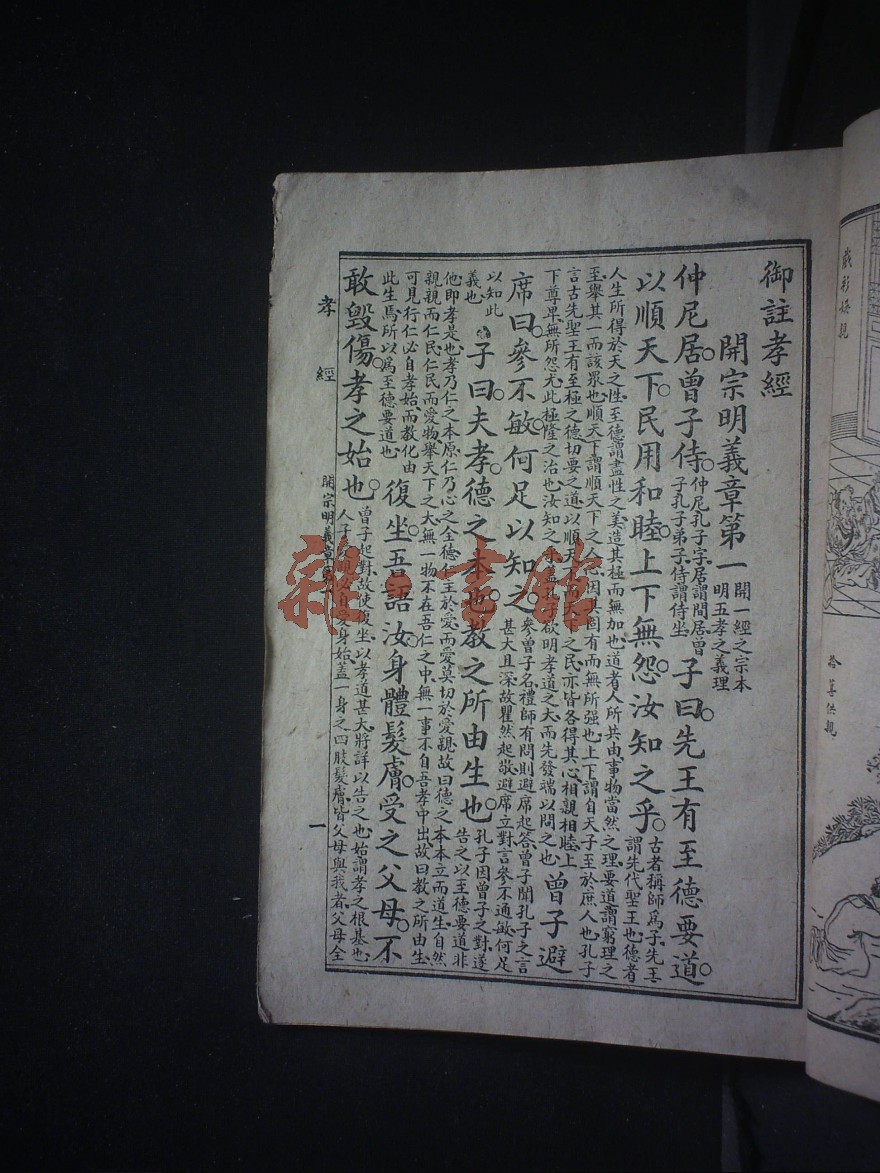 御註孝經
開宗明義章第一
開一經之宗本
明五孝之義理
仲尼居曾子侍
仲尼孔子字居謂間居曾
子孔子弟子侍謂侍坐
子曰先王有至德要道
以順天下民用和睦上下無怨汝知之乎
古者稱師爲子先王
謂先代聖王也德者
人生所得於天之性至德謂盡性之美造其極而無加也道者人所共由事物當然之理要道謂窮理之
至舉其一而該眾也順天下謂順天下之人心因其固有而無所强也上下謂自天子至於庶人也孔子
言古先聖王有至極之德切要之道以順天下之民亦皆各得其心相親相睦上
下尊卑無所怨尤此極隆之治也汝知之乎蓋孔子欲明孝道之大而先發端以問之也
曾子避
席曰參不敏何足以知之
參曾子名禮師有問則避席起答曾子聞孔子之言
甚大且深故瞿然起敬避席立對言參不通敏何足
以知此
義也
子曰夫孝德之本也教之所由生也
孔子因曾子之對遂
告之以至德要道非
他即孝是也孝乃仁之本原仁乃心之全德仁主於愛而愛莫切於愛親故曰德之本本立而道生自然
親親而仁民仁民而愛物舉天下之大無一物不在吾仁之中無一事不自吾孝中出故曰教之所由生
可見行仁必自孝始而教化由
此生焉所以爲至德要道也
復坐吾語汝身體髮膚受之父母不
敢毀傷孝之始也
曾子起對故使復坐以孝道甚大將詳以告之也始謂孝之根基也
人子愛身始蓋一身之四肢髮膚皆父母與我者父母全
孝經
開宗明義章
一
雜·書館
戲彩娛親